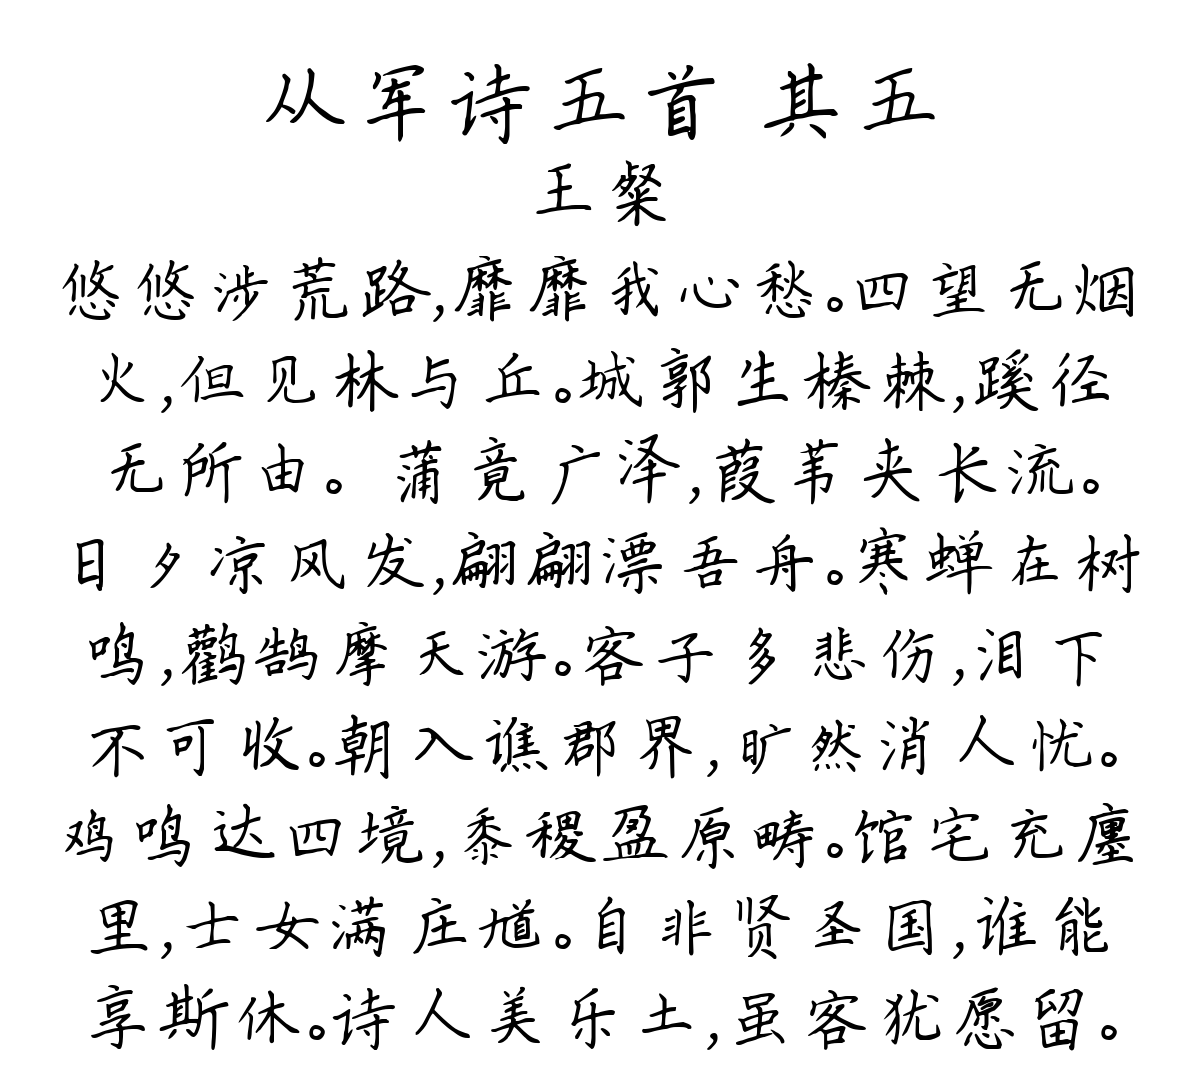 从军诗五首 其五
王粲
悠悠涉荒路,靡靡我心愁。四望无烟
火,但见林与丘。城郭生榛棘,蹊径
无所由。蒲竟广泽,葭苇夹长流。
日夕凉风发,翩翩漂吾舟。寒蝉在树
鸣,鹳鹄摩天游。客子多悲伤,泪下
不可收。朝入谯郡界,旷然消人忧。
鸡鸣达四境,黍稷盈原畴。馆宅充廛
里,士女满庄馗。自非贤圣国,谁能
享斯休。诗人美乐土,虽客犹愿留。